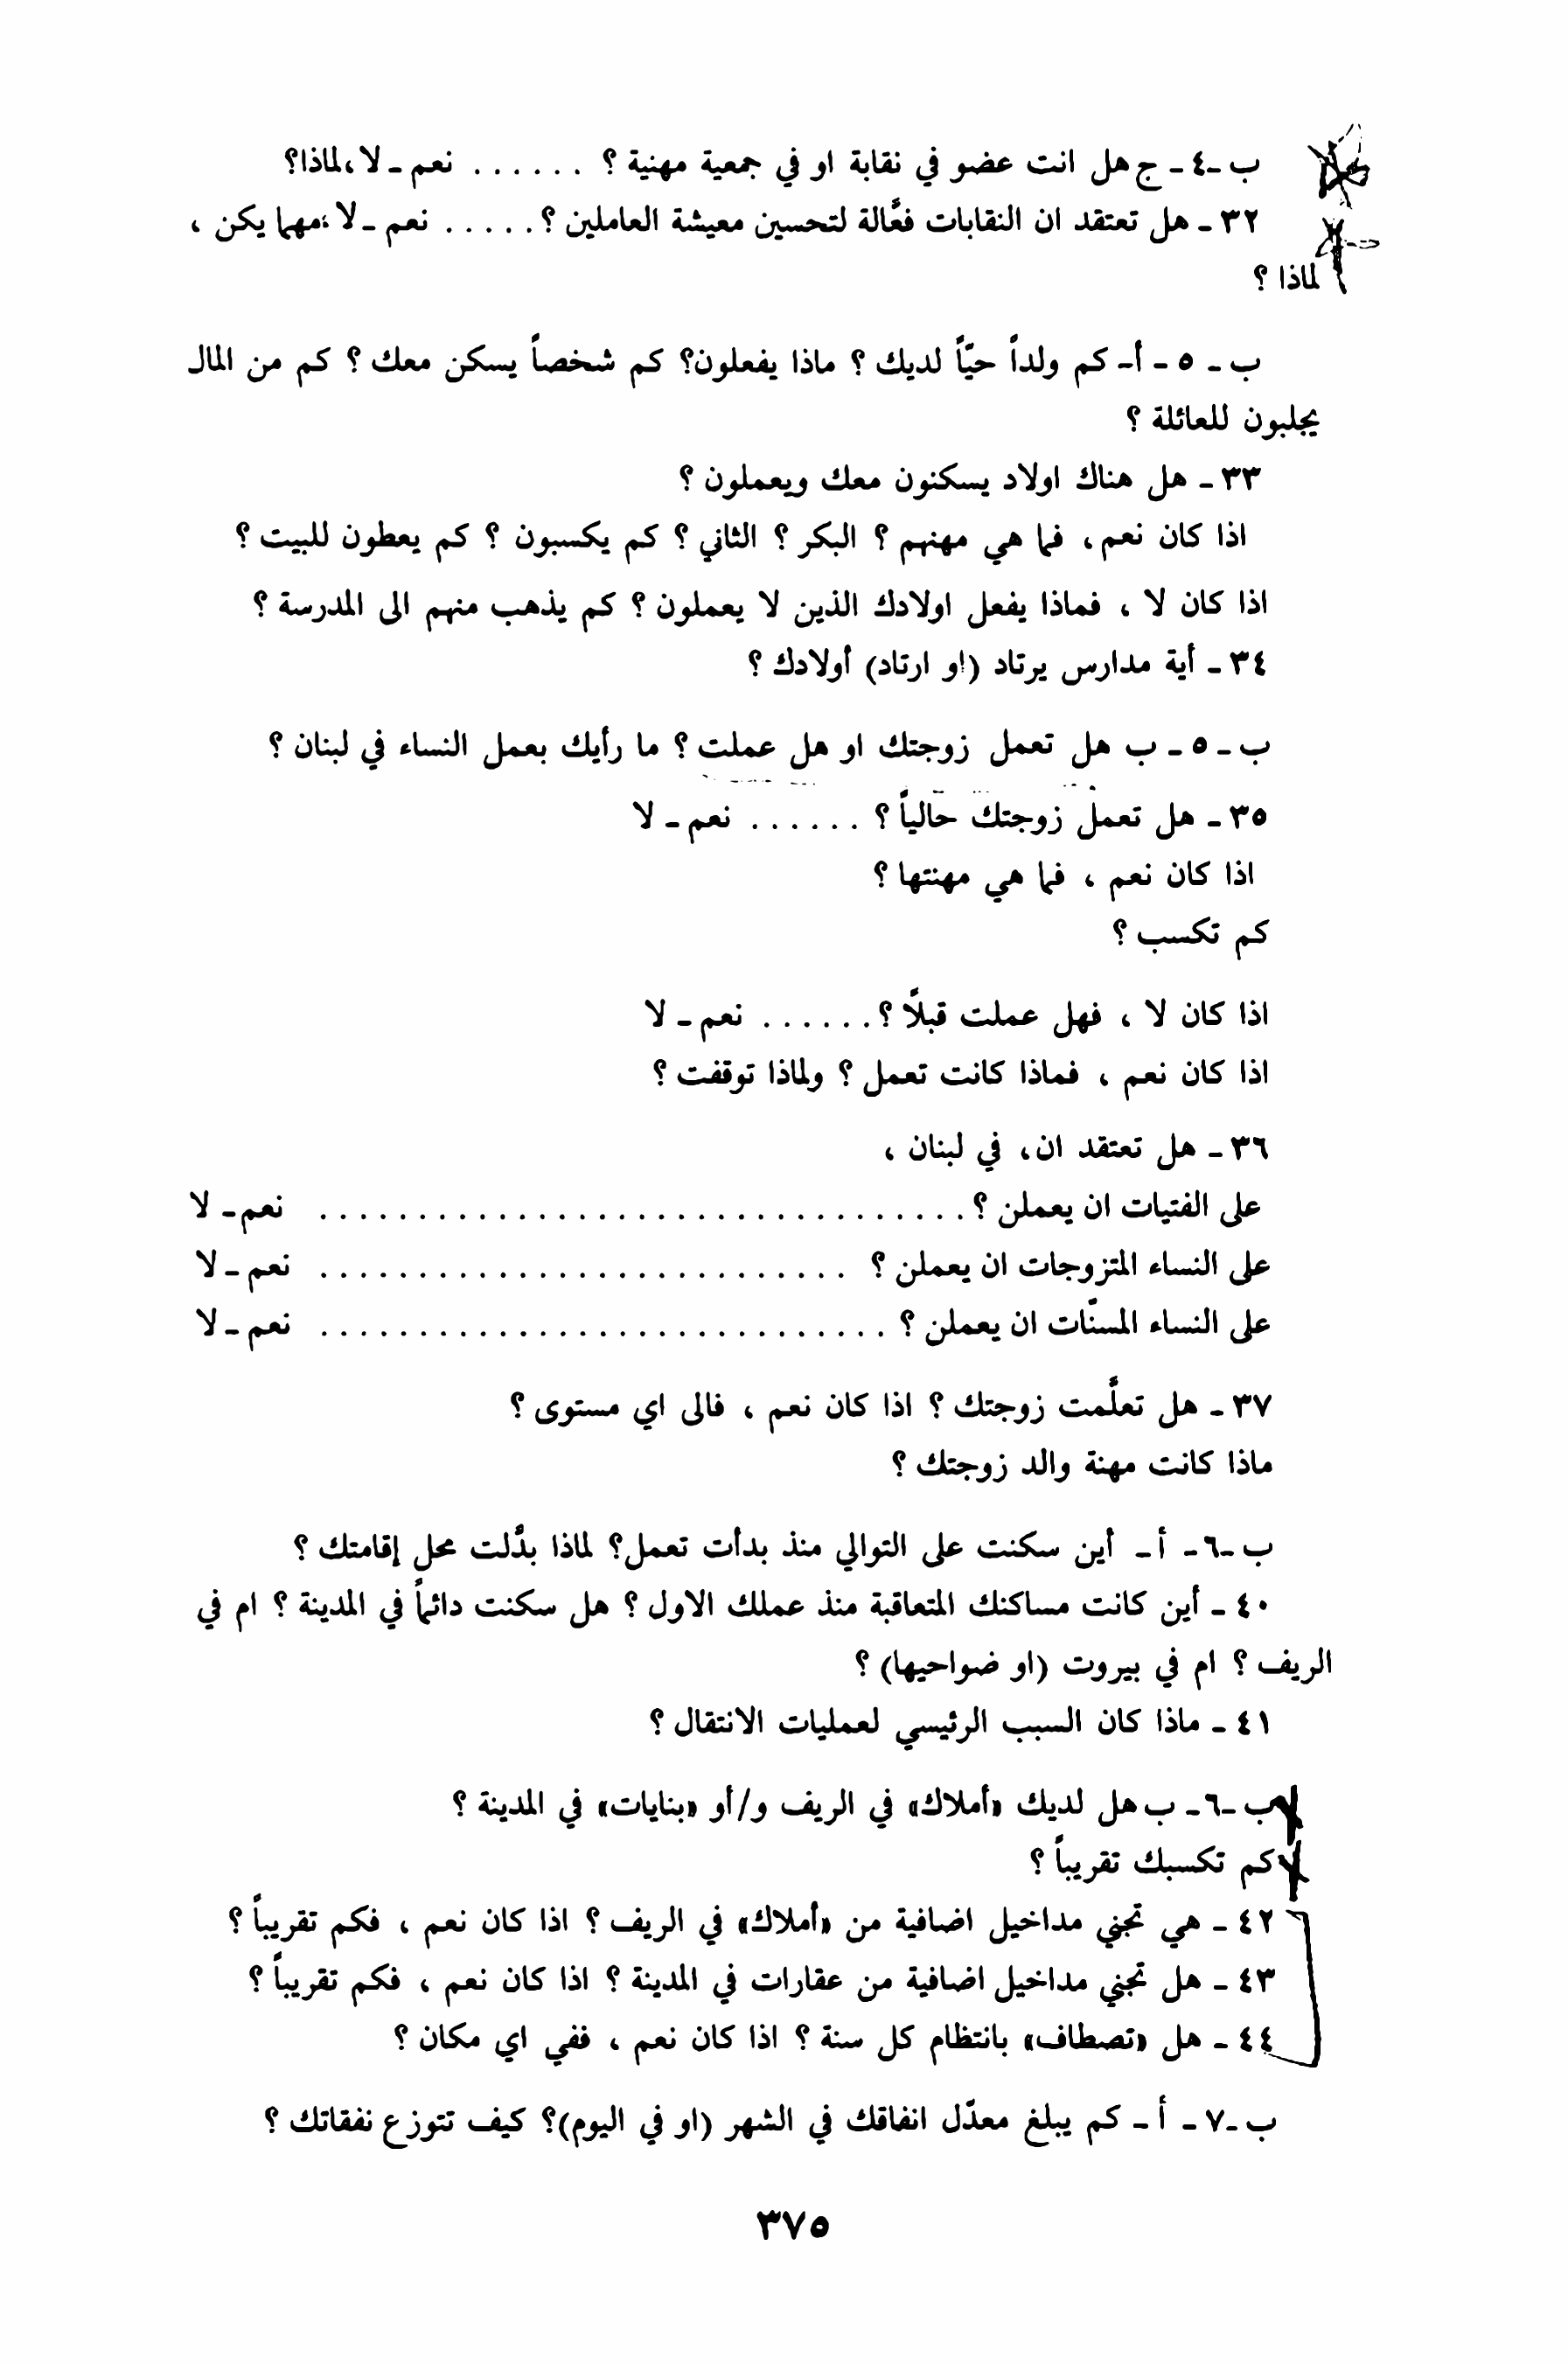 ب -٤ - ج هل انت عضو في نقابة او في جمعية مهنية ؟ . . . . . . نعم - لا ،لماذا؟
٣٢ - هل تعتقد ان النقابات فعَّالة لتحسين معيشة العاملين ؟ . . . . . نعم - لا ،مهما يكن ،
لماذا ؟
ب - ٥ - أ- كم ولداً حيّاً لديك ؟ ماذا يفعلون؟ كم شخصاً يسكن معك ؟ كم من المال
يجلبون للعائلة ؟
٣٣ - هل هناك اولاد يسكنون معك ويعملون ؟
اذا كان نعم، فما هي مهنهم ؟ البكر ؟ الثاني ؟ كم يكسبون ؟ كم يعطون للبيت ؟
اذا كان لا ، فماذا يفعل اولادك الذين لا يعملون ؟ كم يذهب منهم الى المدرسة ؟
٣٤ - أية مدارس يرتاد (او ارتاد) أولادك ؟
ب - ٥ - ب هل تعمل زوجتك او هل عملت ؟ ما رأيك بعمل النساء في لبنان ؟
٣٥ - هل تعمل زوجتك حالياً ؟ . . . . . . نعم - لا
اذا كان نعم ، فما هي مهنتها ؟
كم تكسب ؟
اذا كان لا ، فهل عملت قبلاً ؟ . . . . . . نعم - لا
اذا كان نعم ، فماذا كانت تعمل ؟ ولماذا توقفت ؟
٣٦ - هل تعتقد ان، في لبنان ،
على الفتيات ان يعملن ؟ . . . . . . . . . . . . . . . . . . . . . . . . . . . . . . . . . نعم - لا
على النساء المتزوجات ان يعملن ؟ . . . . . . . . . . . . . . . . . . . . . . . . . . . نعم - لا
على النساء المسنّات ان يعملن ؟ . . . . . . . . . . . . . . . . . . . . . . . . . . . . . نعم - لا
٣٧ - هل تعلَّمت زوجتك ؟ اذا كان نعم ، فالى اي مستوى ؟
ماذا كانت مهنة والد زوجتك ؟
ب -٦ - أ - أين سكنت على التوالي منذ بدأت تعمل؟ لماذا بدَّلت محل إقامتك ؟
٤٠ - أين كانت مساكنك المتعاقبة منذ عملك الاول ؟ هل سكنت دائماً في المدينة ؟ ام في
الريف ؟ ام في بيروت (او ضواحيها) ؟
٤١ - ماذا كان السبب الرئيسي لعمليات الانتقال ؟
ب -٦ - ب هل لديك «أملاك» في الريف و/أو «بنايات» في المدينة ؟
كم تكسبك تقريباً ؟
٤٢ - هي تجني مداخيل اضافية من «أملاك» في الريف ؟ اذا كان نعم ، فكم تقريباً ؟
٤٣ - هل تجني مداخيل اضافية من عقارات في المدينة ؟ اذا كان نعم ، فكم تقريباً ؟
٤٤ - هل «تصطاف» بانتظام كل سنة ؟ اذا كان نعم ، ففي اي مكان ؟
ب -٧ - أ - كم يبلغ معدّل انفاقك في الشهر (او في اليوم)؟ كيف تتوزع نفقاتك ؟
٣٧٥